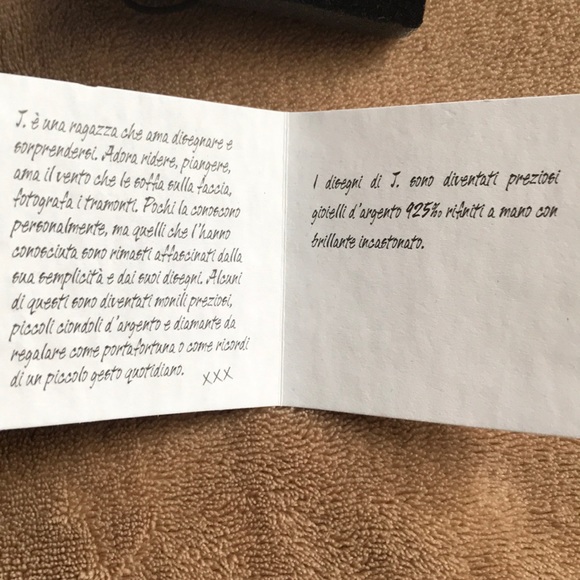 J. è una ragazza che ama disegnare e
sorprendersi. Adora ridere, piangere,
ama il vento che le soffia sulla faccia,
fotografa i tramonti. Pochi la conoscono
personalmente, ma quelli che l'hanno
conosciuta sono rimasti affascinati dalla
sua semplicità e dai suoi disegni. Alcuni
di questi sono diventati monili preziosi,
piccoli ciondoli d'argento e diamante da
regalare come portafortuna o come ricordi
di un piccolo gesto quotidiano.
xxx
I disegni di J. sono diventati preziosi
gioielli d'argento 925‰ rifiniti a mano con
brillante incastonato.